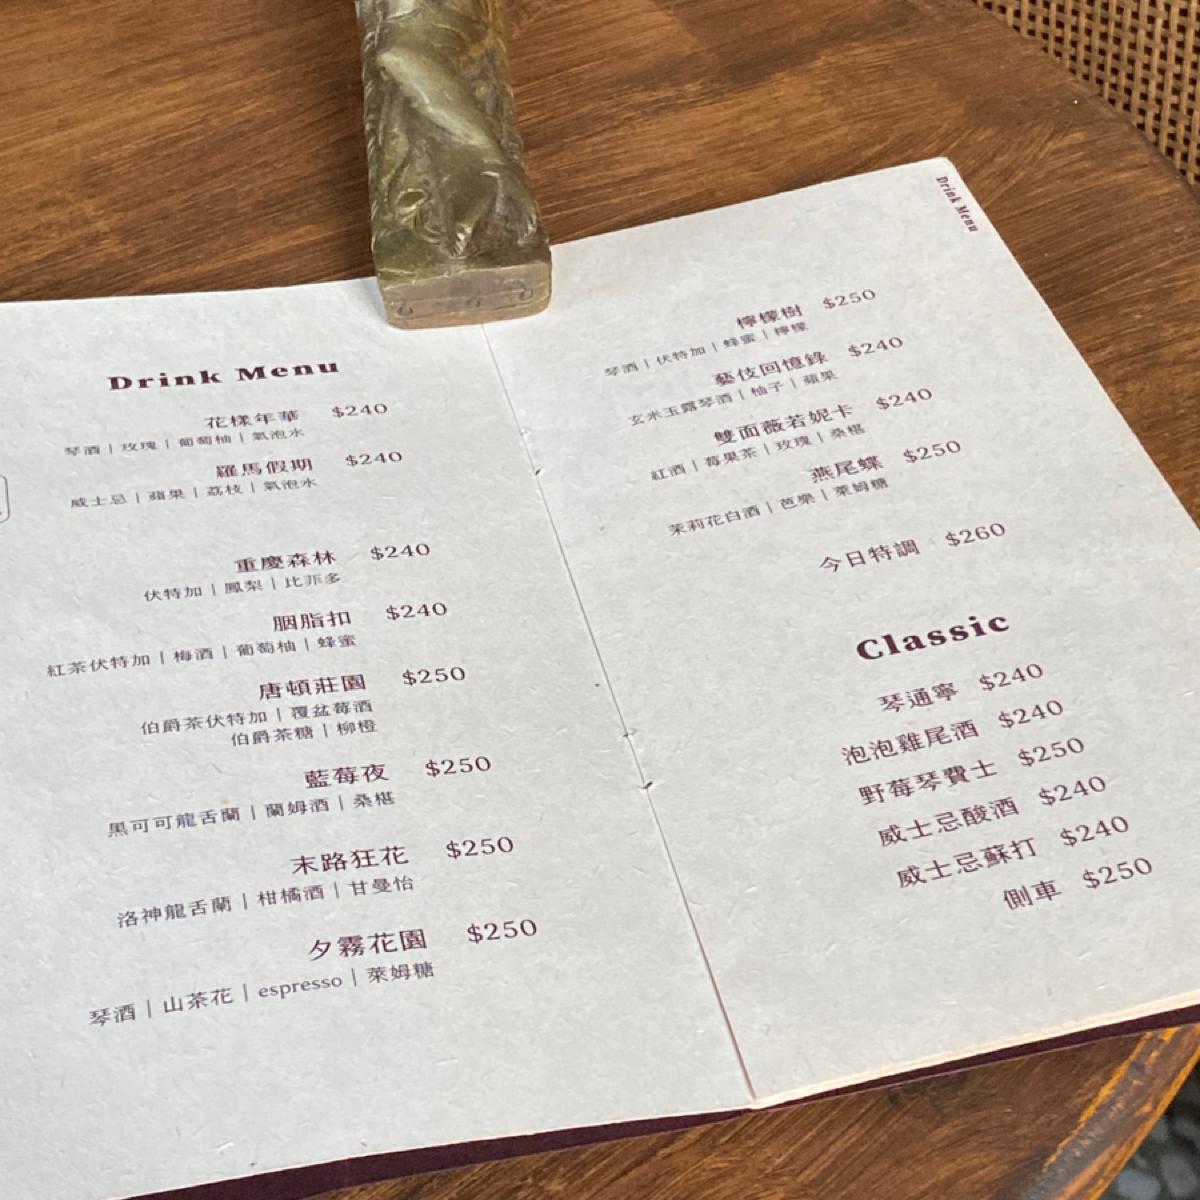 Drink Menu
花樣年華 $240
琴酒 | 玫瑰 | 葡萄柚 | 氣泡水
羅馬假期 $240
威士忌 | 蘋果 | 荔枝 | 氣泡水
重慶森林 $240
伏特加 | 鳳梨 | 比菲多
胭脂扣 $240
紅茶伏特加 | 梅酒 | 葡萄柚 | 蜂蜜
唐頓莊園 $250
伯爵茶伏特加 | 覆盆莓酒
伯爵茶糖 | 柳橙
藍莓夜 $250
黑可可龍舌蘭 | 蘭姆酒 | 桑椹
末路狂花 $250
洛神龍舌蘭 | 柑橘酒 | 甘曼怡
夕霧花園 $250
琴酒 | 山茶花 | espresso | 萊姆糖
Drink Menu
檸檬樹 $250
琴酒 | 伏特加 | 蜂蜜 | 檸檬
藝伎回憶錄 $240
玄米玉露琴酒 | 柚子 | 蘋果
雙面薇若妮卡 $240
紅酒 | 莓果茶 | 玫瑰 | 桑椹
燕尾蝶 $250
茉莉花白酒 | 芭樂 | 萊姆糖
今日特調 $260
Classic
琴通寧 $240
泡泡雞尾酒 $240
野莓琴費士 $250
威士忌酸酒 $240
威士忌蘇打 $240
側車 $250